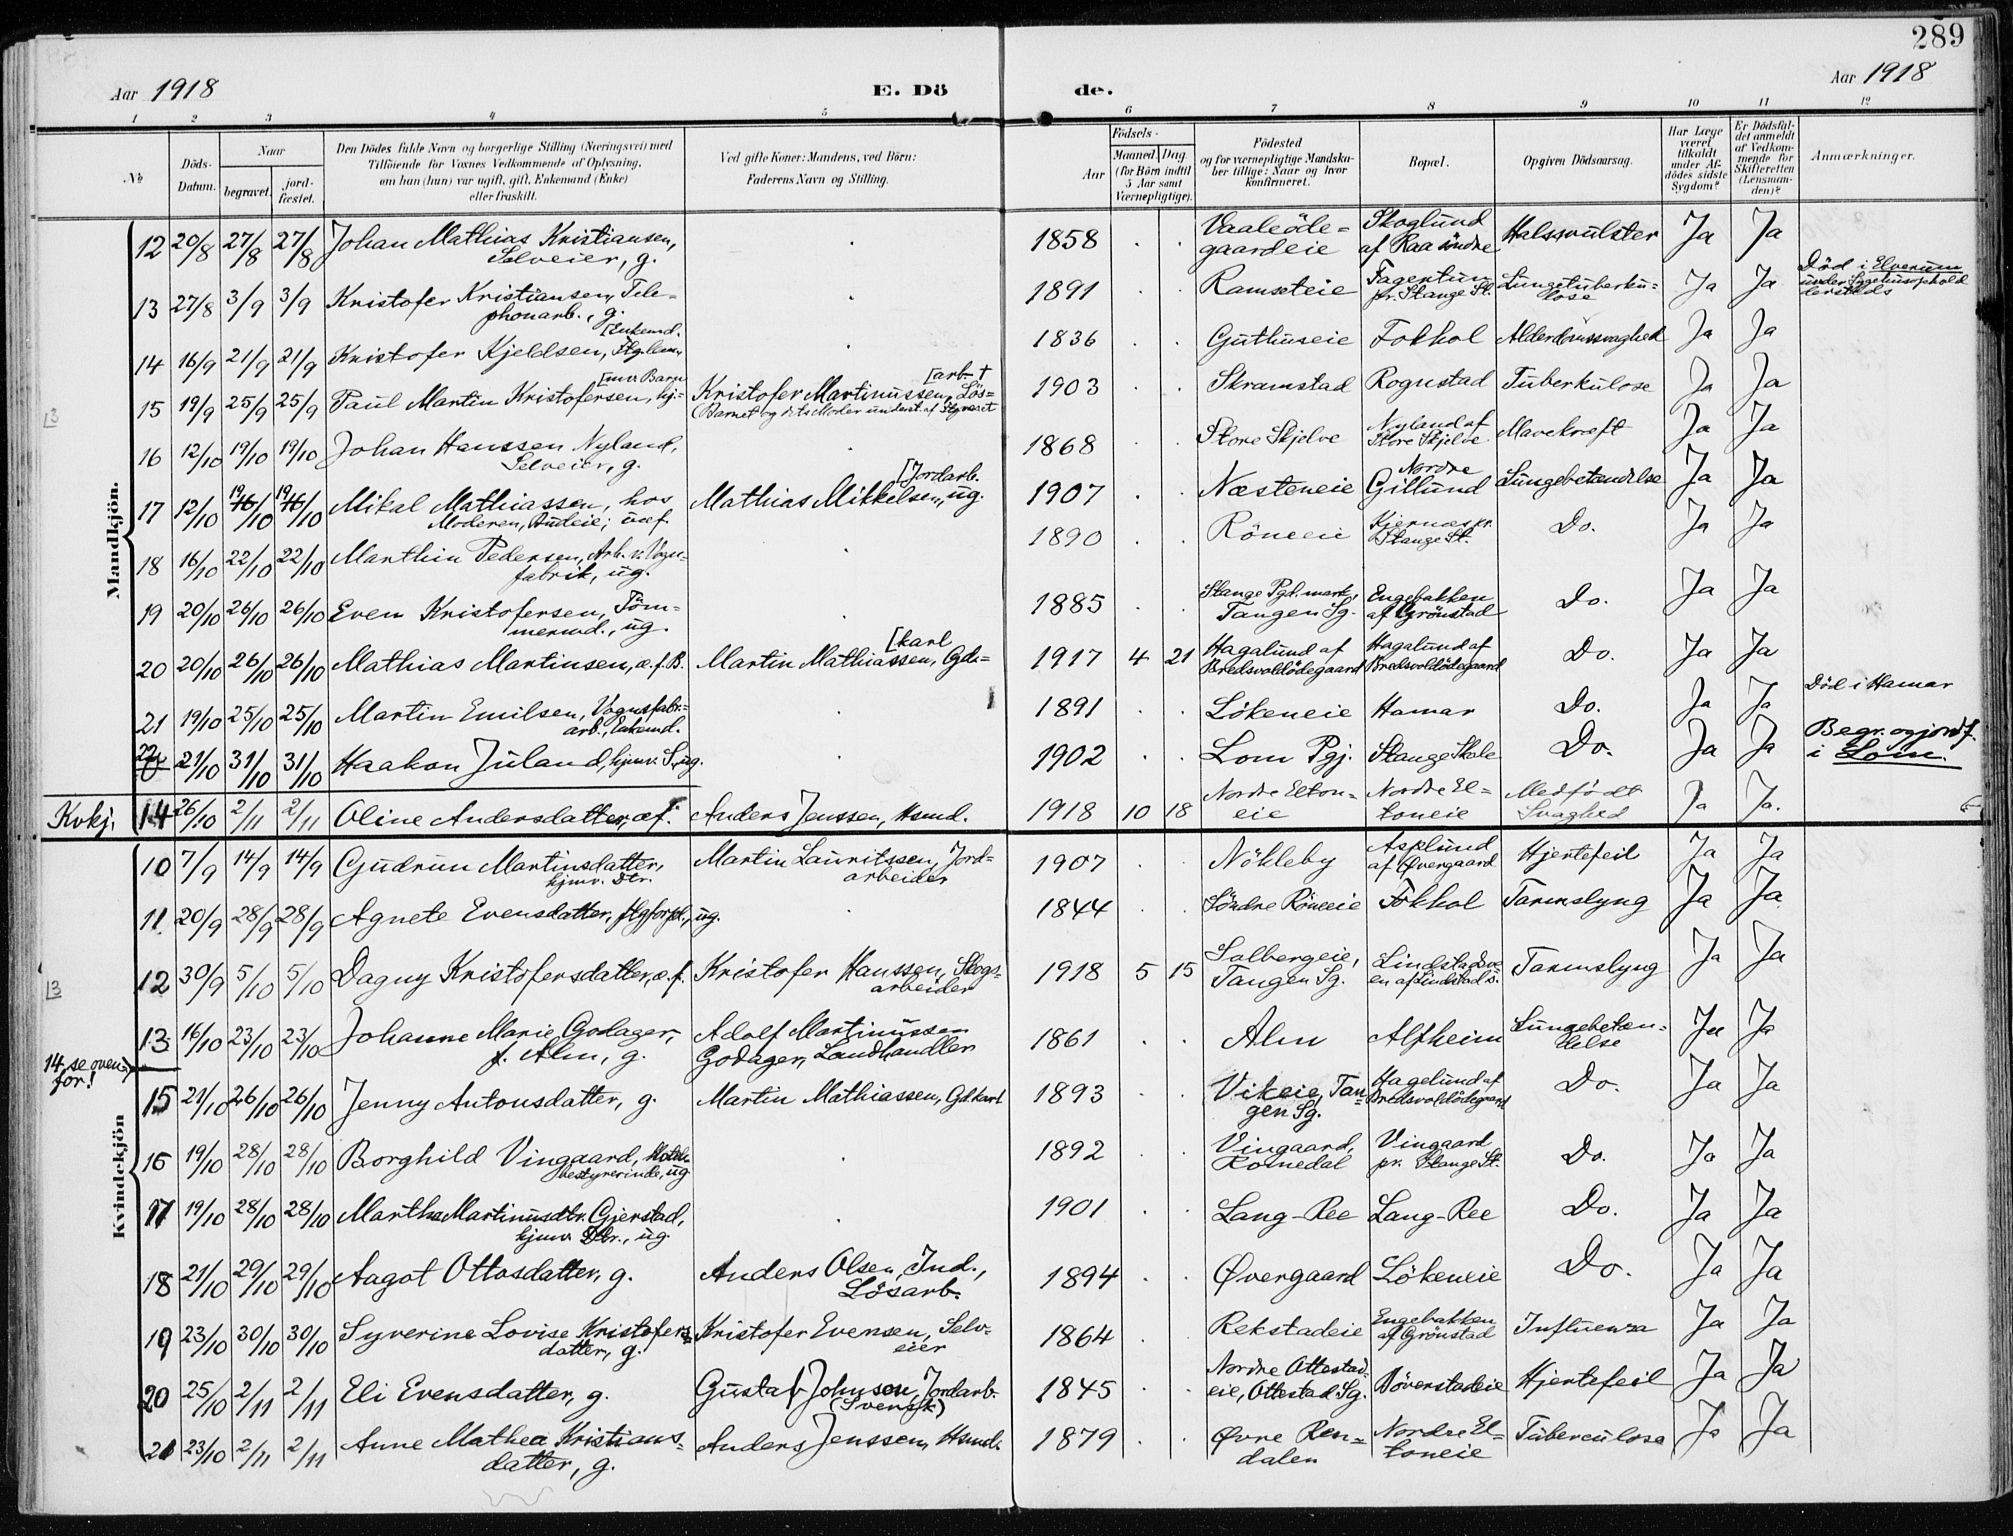 289
Aar 1918
E. Dö
de.
Aar 1918
1 2 3 4 5 6 7 8 9 10 11 12
№
Döds-Datum.
Naar
begravet.
jord-fæstet.
Den Dödes fulde Navn og borgerlige Stilling (Næringsvei) med
Tilföiende for Voxnes Vedkommende af Oplysning,
om han (hun) var ugift, gift, Enkemand (Enke)
eller fraskilt.
Ved gifte Koner: Mandens, ved Börn:
Faderens Navn og Stilling.
Födsels-
Aar
Maaned. Dag.
(for Börn indtil
5 Aar samt
Værnepligtige).
Födested
og for værnepligtige Mandska-
ber tillige: Naar og hvor
konfirmeret.
Bopæl.
Opgiven Dödsaarsag.
Har Læge
været
tilkaldt
under Af-
dödes sidste
Sygdom?
Er Dödsfal-
det anmeldt
af Vedkom-
mende for
Skifteretten
(Lensman-
den)?
Anmærkninger.
Mandkjön.
12 20/8 27/8 27/8 Johan Mathias Kristiansen, Selveier, g. 1858 Vaaleöde-gaardeie Skoglund af Raa söndre Halssvulster Ja Ja
13 27/8 3/9 3/9 Kristofer Kristiansen, Tele-phonarb., g. 1891 Ramseteie Fagertun pr. Stange St. Lungetuberku-lose Ja Ja Död i Elverum under Sygehusophold
14 16/9 21/9 21/9 Kristofer Kjeldsen, [Enkemd. 1836 Guthuseie Fokhol Alderdomssvaghed Ja Ja
15 19/9 25/9 25/9 Paul Martin Kristofersen, hj-[mv. Barn Kristofer Martinussen, Lös-[arb. † (Barnet og dets Moder underst. af Styreret 1903 Skramstad Rognstad Tuberkulose Ja Ja
16 12/10 19/10 19/10 Johan Hanssen Nyland, Selveier, g. 1868 Store Skjelve Nyland af Store Skjelve Mavekræft Ja Ja
17 12/10 19/10 19/10 Mikal Mathiassen, hos Moderen, Audeie; Mathias Mikkelsen, ug. [Jordarb. 1907 Næsteneie Nordre Gillund Lungebetændelse Ja Ja
18 16/10 22/10 22/10 Marthin Pedersen, Arb. v. Vogn-fabrik, ug. 1890 Röneeie Kjernæs pr. Stange St. Do. Ja Ja
19 20/10 26/10 26/10 Even Kristofersen, Töm-mermd., ug. 1885 Stange Pgd. mark, Tangen Sg. Engebakken af Grönstad Do. Ja Ja
20 20/10 26/10 26/10 Mathias Martinsen, æ.f.B. Martin Mathiassen, Gds-[karl 1917 4 21 Hagalund af Bredsvoldödegaard Hagalund af Bredsvoldödegaard Do. Ja Ja
21 19/10 25/10 25/10 Martin Emilsen, Vognfabr.-arb., Enkemd. 1891 Lökeneie Hamar Do. Ja Ja Död i Hamar
22 21/10 31/10 31/10 Haakon Juland, hjmv. S. ug. 1902 Lom Pgj. Stange Skole Do. Ja Ja Begr. og jordf. i Lom.
Kvkj. 14 26/10 2/11 2/11 Oline Andersdatter, æf. Anders Jenssen, Hsmd. 1918 10 18 Nordre Elton-eie Nordre El-toneie Medfödt Svaghed Ja Ja.
Kvindekjön
10 7/9 14/9 14/9 Gudrun Martinsdatter, hjmv. Dtr. Martin Lauritssen, Jord-arbeider 1907 Nökleby Asplund af Övergaard Hjertefeil Ja Ja
11 20/9 28/9 28/9 Agnete Evensdatter, ug. 1844 Söndre Röneeie Fokhol Tarmslyng Ja Ja
12 30/9 5/10 5/10 Dagny Kristofersdatter, æ.f. Kristofer Hanssen, Skogs-arbeider 1918 5 15 Solbergeie, Tangen Sg. Lindstadsve-en af Lindstad s. Tarmslyng Ja Ja
13 16/10 23/10 23/10 Johanne Marie Godager, f. Alm, g. Adolf Martinussen Godager, Landhandler 1861 Alm Alfheim Lungebetæn-delse Ja Ja
14, se oven-for!
15 21/10 26/10 26/10 Jenny Antonsdatter, g. Martin Mathiassen, Gdkarl 1893 Vikeie, Tan-gen Sg. Hagelund af Bredsvoldödegaard Do. Ja Ja
16 19/10 28/10 28/10 Borghild Vingaard, Hotel-bestyrerinde, ug 1892 Vingaard, Romedal Vingaard pr. Stange St. Do. Ja Ja
17 19/10 28/10 28/10 Martha Martinusdtr. Gjerstad, hjmv. Dtr., ug. 1901 Lang-Ree Lang-Ree Do. Ja Ja
18 21/10 29/10 29/10 Aagot Ottosdatter, g. Anders Olsen, Ind., Lösarb. 1894 Övergaard Lökeneie Do. Ja Ja
19 23/10 30/10 30/10 Syverine Lovise Kristofers-datter, g. Kristofer Evensen, Selv-eier 1864 Rekstadeie Engebakken af Grönstad Influensa Ja Ja
20 25/10 2/11 2/11 Eli Evensdatter, g. Gustaf Johnson, Jordarb. (Svensk) 1845 Nordre Ottestad-eie, Ottestad Sg. Böverstadeie Hjertefeil Ja Ja
21 23/10 2/11 2/11 Anne Mathea Kristians-datter, g. Anders Jenssen, Hsmd. 1879 Øvre Ren-dalen Nordre El-toneie Tuberculose Ja Ja